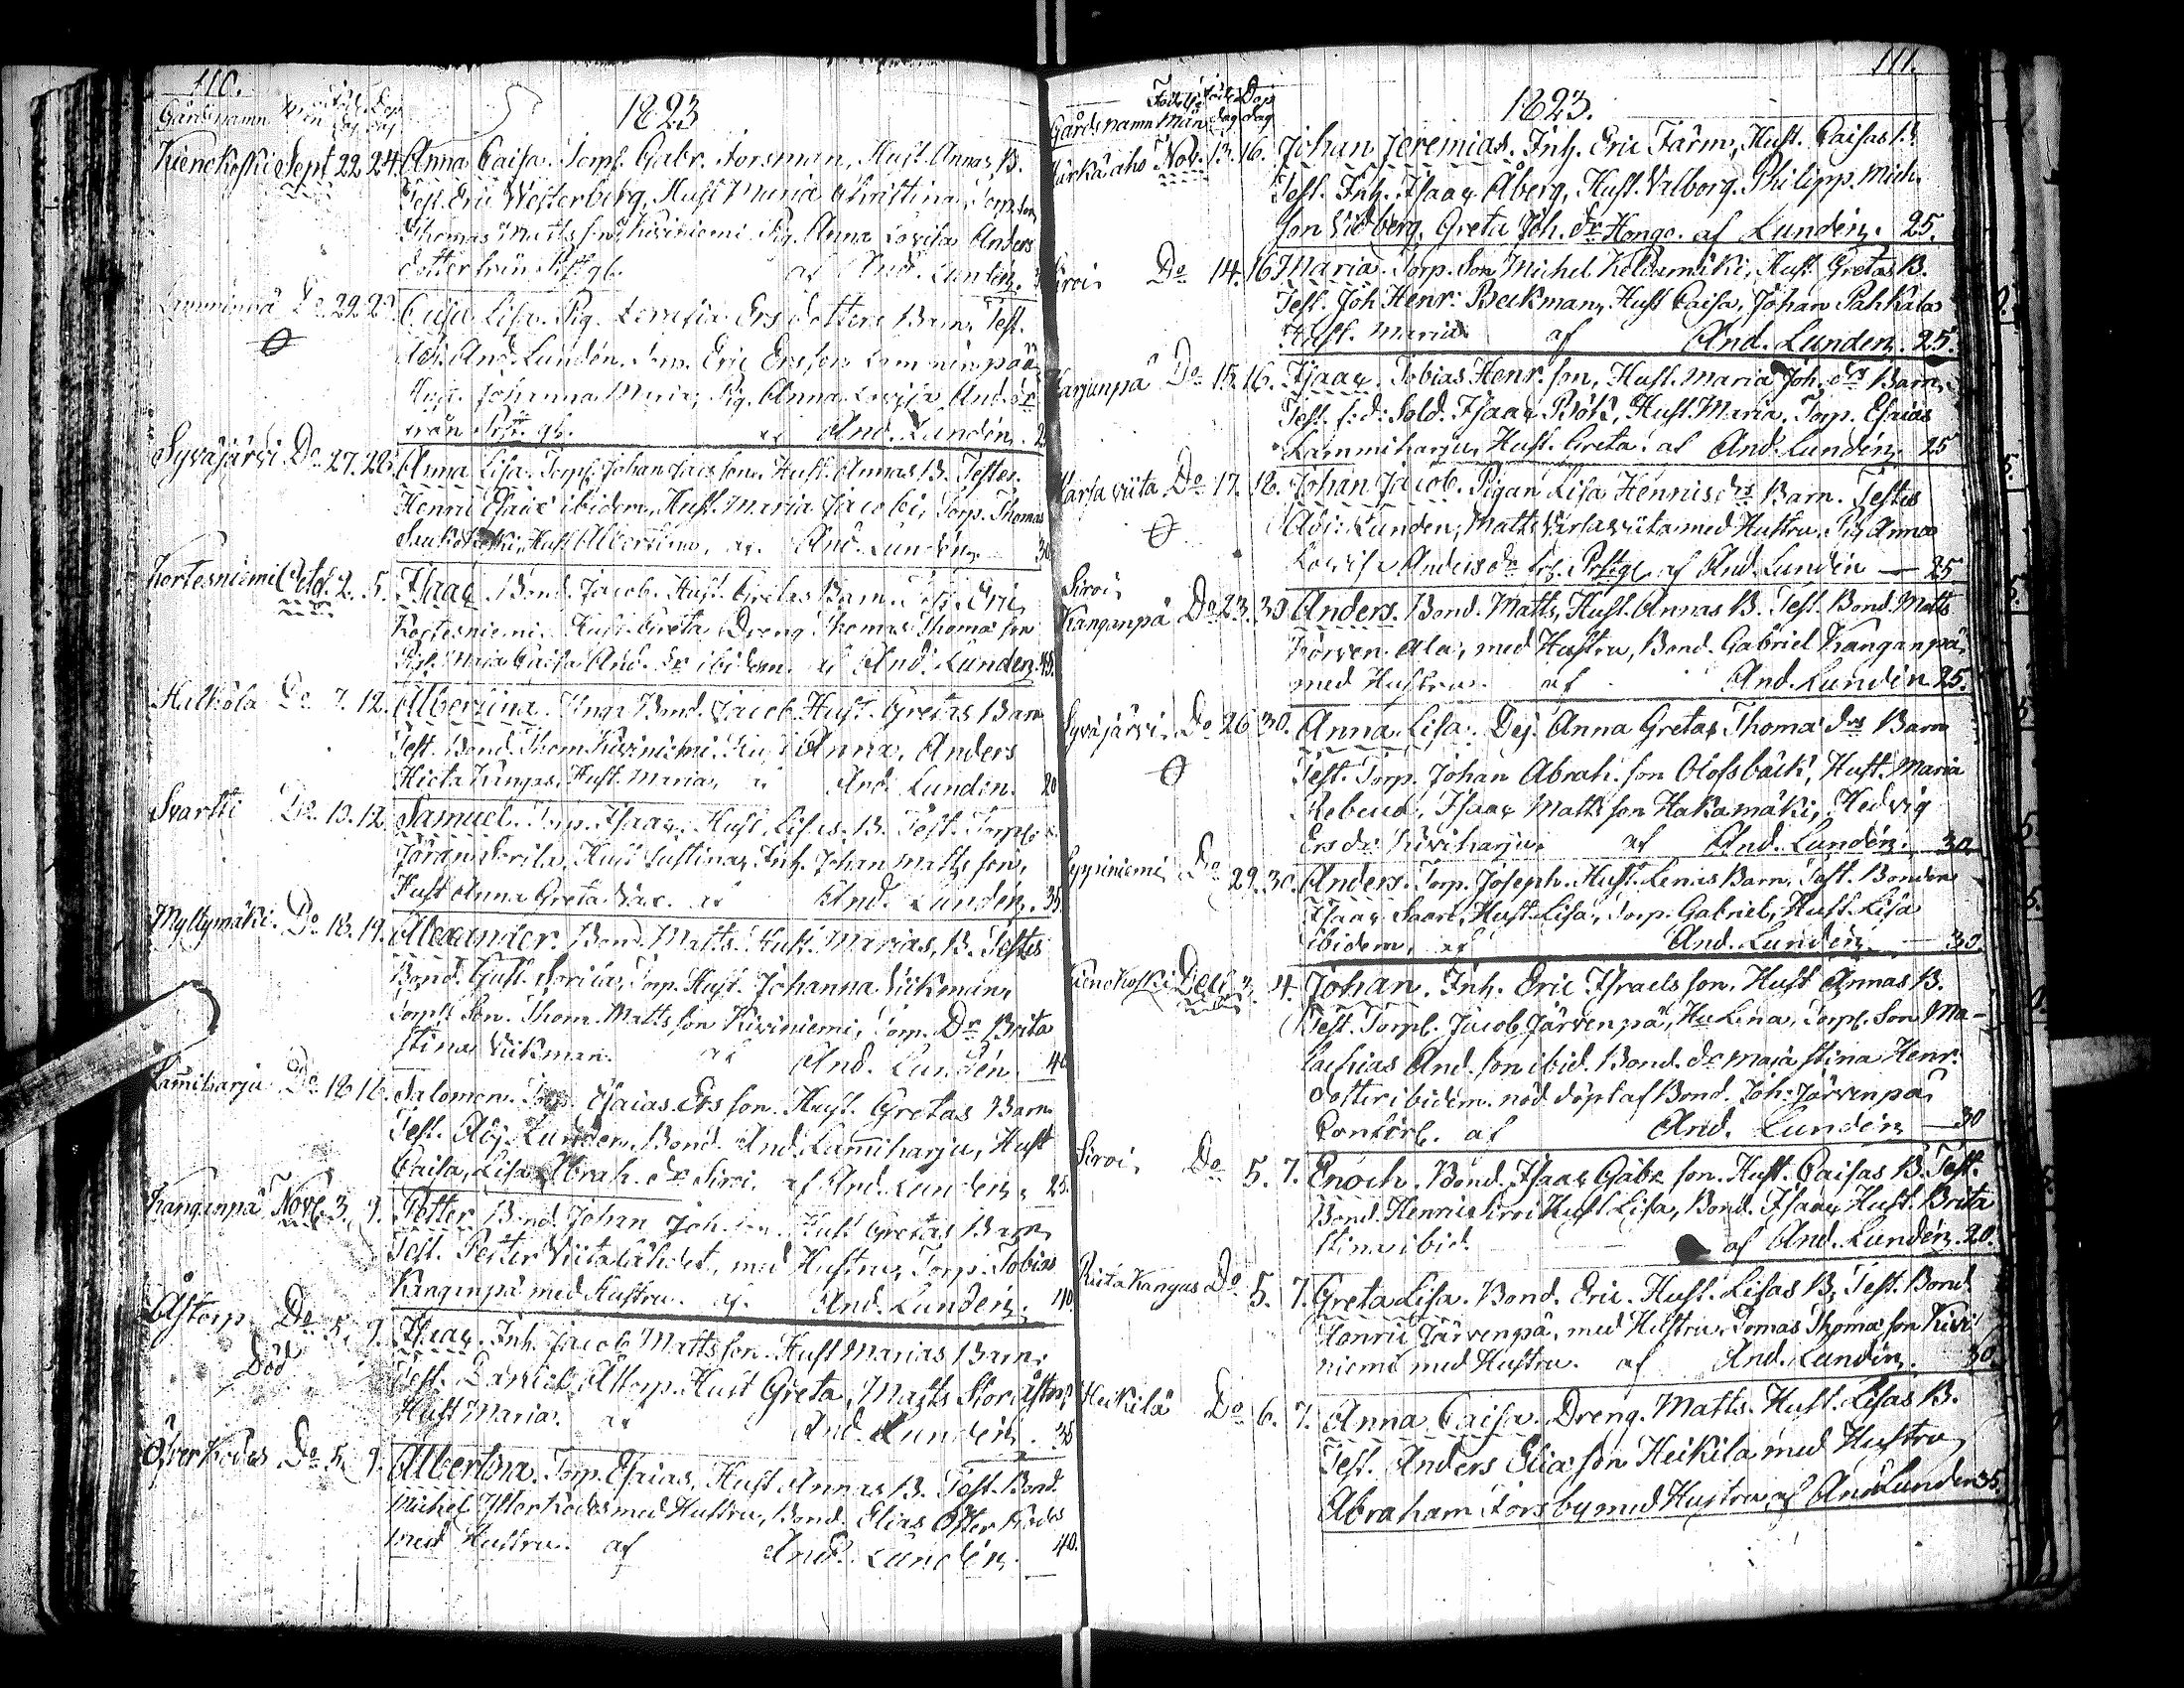 110.
Gårdsnamn
1823
Kienckoski Sept 22 24. Anna Caisa. Torp. Gabr. Forsman, Hust. Annas B.
Test. Eric Westerberg, Hust Maria Christina, Torp. son
Thomas Matts son Kiviniemi Pig. Anna Lovisa Anders
dotter från Pst. gl. af And. Lundén.
Lamminpä Do 29. 29 Caisa Lisa. Pig. Ers dotters Barn, Test.
Adj. And. Lundén. Eric Ersson Lamminpää
Hust. Johanna Maria, Pig. Anna Lovisa And. dr
från Pst. gl. af And. Lundén.
Syväjärvi Do 27. 28. Anna Lisa. Torp. Johan Hust. Annas B. Testes.
Henric Esaiæ ibidem, Hust. Maria Jacobi, Torp. Thomas
Hust Albertina, af And. Lundén 30
Kortesniemi Octob. 2. 5. Isaac. Bond. Jacob. Hust. Gretas Barn. Test. Eric
Kortesniemi Hust. Greta, Dreng Thomas Thomæ son
Pig. Maria Caisa And. dr ibidem. af And. Lundén. 45.
Do 7. 12. Albertina. Bond. Jacob Hust. Gretas Barn
Test. Bond. Thom. Kiviniemi Hust Anna, Anders
Hietakangas. Hust. Maria, af And. Lundén. 20
Svartti Do 10. 12 Samuel. Torp. Isaac. Hust. Lisas. B. Test. Torp.
Jöran Sorila, Hust Justina, Inh. Johan Mattsson,
Hust Anna Greta af And. Lundén. 35
Myllymäki. Do 18. 19. Alexander. Bond. Matts. Hust. Marias, B. Testes
Bond. Gust. Sorila, Torp. Hust. Johanna Vikman,
Torp. Son. Thom. Matts son Kiviniemi, Torp. Dr Brita
Stina Vikman. af And. Lundén 40
Lamiharju Do 18 Salomon. Torp. Esaias. Ers son. Hust. Gretas Barn
Test. Adj. Lundén. Bond. And. Lamiharju, Hust
Caisa, Lisa Abrah. dr Siroi. af And. Lundén, 25.
Kanganpä Nove 3. 9. Petter Bond. Johan Joh. son. Hust Gretas Barn
Test. Petter Viitalähdet, med Hustru, Torp. Tobias
Kanganpä med Hustru. af. And. Lundén. 40
Åstorp Do 5. 9. Isaac. Inh. Jacob Mattsson. Hust Marias Barn.
Död
Test. Daniel Åstorp. Hust Greta, Matts Storåstorp
Hust Maria. af And. Lundén. 35
Öfver Kodes Do 5. 9. Albertina. Torp. Esaias, Hust Annas B. Test. Bond.
Michel Ytter Kodes med Hustru, Bond. Elias Öfver Kodes
med Hustru. af And. Lundén. 40.
111.
Gårds namn Mån dag dag
1823.
Härkä aho Nov. 13. 16. Johan Jeremias. Inh. Eric Färm, Hust. Caisas B.
Test. Inh. Isaac Åberg, Hust. Valborg. Philipp. Mich.
son Vidberg, Greta Joh. dr Hongo. af Lundén. 25.
Siroi Do 14. 16 Maria. Torp. Son Michel Hust. Gretas B.
Test. Joh Henr. Beckman, Hust Caisa, Johan Pahkala
Hust. Maria af And. Lundén. 25.
Harjunpä Do 15. 16. Isaac. Tobias Henr. son, Hust. Maria Joh. drs Barn,
Test. f: d: Sold. Isaac Böök, Hust. Maria. Torp. Esaias
Lammiharju, Hust. Greta. af And. Lundén, 25
Varsa viita Do 17. 18. Johan Jacob. Pigan Lisa Hennis drs Barn. Testes
Adj: Lundén, Matts Varsaviita med Hustru. Pig Anna
Lovisa Anders dr fr. Pstgl. af And. Lundén — 25
Siroi
Kanganpä Do 23. 30 Anders. Bond. Matts, Hust. Annas B. Test. Bond. Matts
Törven ala, med Hustru, Bond. Gabriel Kanganpä,
med Hustru. af And. Lundén 25.
Syväjärvi. Do 26 30. Anna Lisa. Dej. Anna Gretas Thomæ drs Barn
Test. Torp. Johan Abrah. son Olofsbäck, Hust. Maria
Rebecca, Isaac Matts son Hakamäki, Hedvig
Ers dr Kiviharju. af And. Lundén. 30
Sypiniemi Do 29. 30. Anders. Torp. Joseph. Hust. Lenas Barn, Test. Bonden
Isaac Saari, Hust. Lisa, Torp. Gabriel, Hust. Lisa
ibidem, af And. Lundén — 30
Kienckoski Dec. 3. 4. Johan. Inh. Eric Israels son. Hust Annas B.
Test. Torp. Jacob Järvenpä, Hu Lena, Torp. Son Ma-
And. son ibid. Bond. dr Maja Stina Henr.
dotter ibidem. nöd döpt af Bond. Joh. Järvenpä
af And. Lundén — 30
Siroi. Do 5. 7. Enoch. Bond. Isaac Gabr. son. Hust. Caisas B. Test.
Bond. Henric Siroi Hust Lisa, Bond. Isaac Hust. Brita
Stina ibid. af And. Lundén. 20.
Riita Kangas Do 5. 7. Greta Lisa. Bond. Eric. Hust. Lisas B, Test. Bond.
Henric Järvenpä, med Hustru, Tomas Thomæ son Kivi
niemi med Hustru. af And. Lundén. 30.
Heikilä Do 6. 7. Anna Caisa. Dreng. Matts. Hust. Lisas B.
Test. Anders Eliæ son Heikilä med Hustru
Abraham Forsby med Hustru af And Lundén 35.